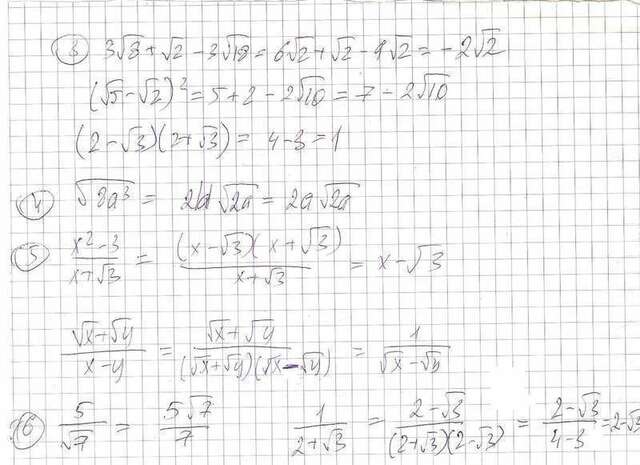 ③ 3√8 + √2 - 3√18 = 6√2 + √2 - 9√2 = -2√2
(√5 - √2)² = 5 + 2 - 2√10 = 7 - 2√10
(2 - √3)(2 + √3) = 4 - 3 = 1
④ √(8a³) = 2|a|√(2a) = 2a√(2a)
⑤ (x² - 3)/(x + √3) = ((x - √3)(x + √3))/(x + √3) = x - √3
(√x + √y)/(x - y) = (√x + √y)/((√x + √y)(√x - √y)) = 1/(√x - √y)
⑥ 5/√7 = 5√7/7 1/(2 + √3) = (2 - √3)/((2 + √3)(2 - √3)) = (2 - √3)/(4 - 3) = 2 - √3